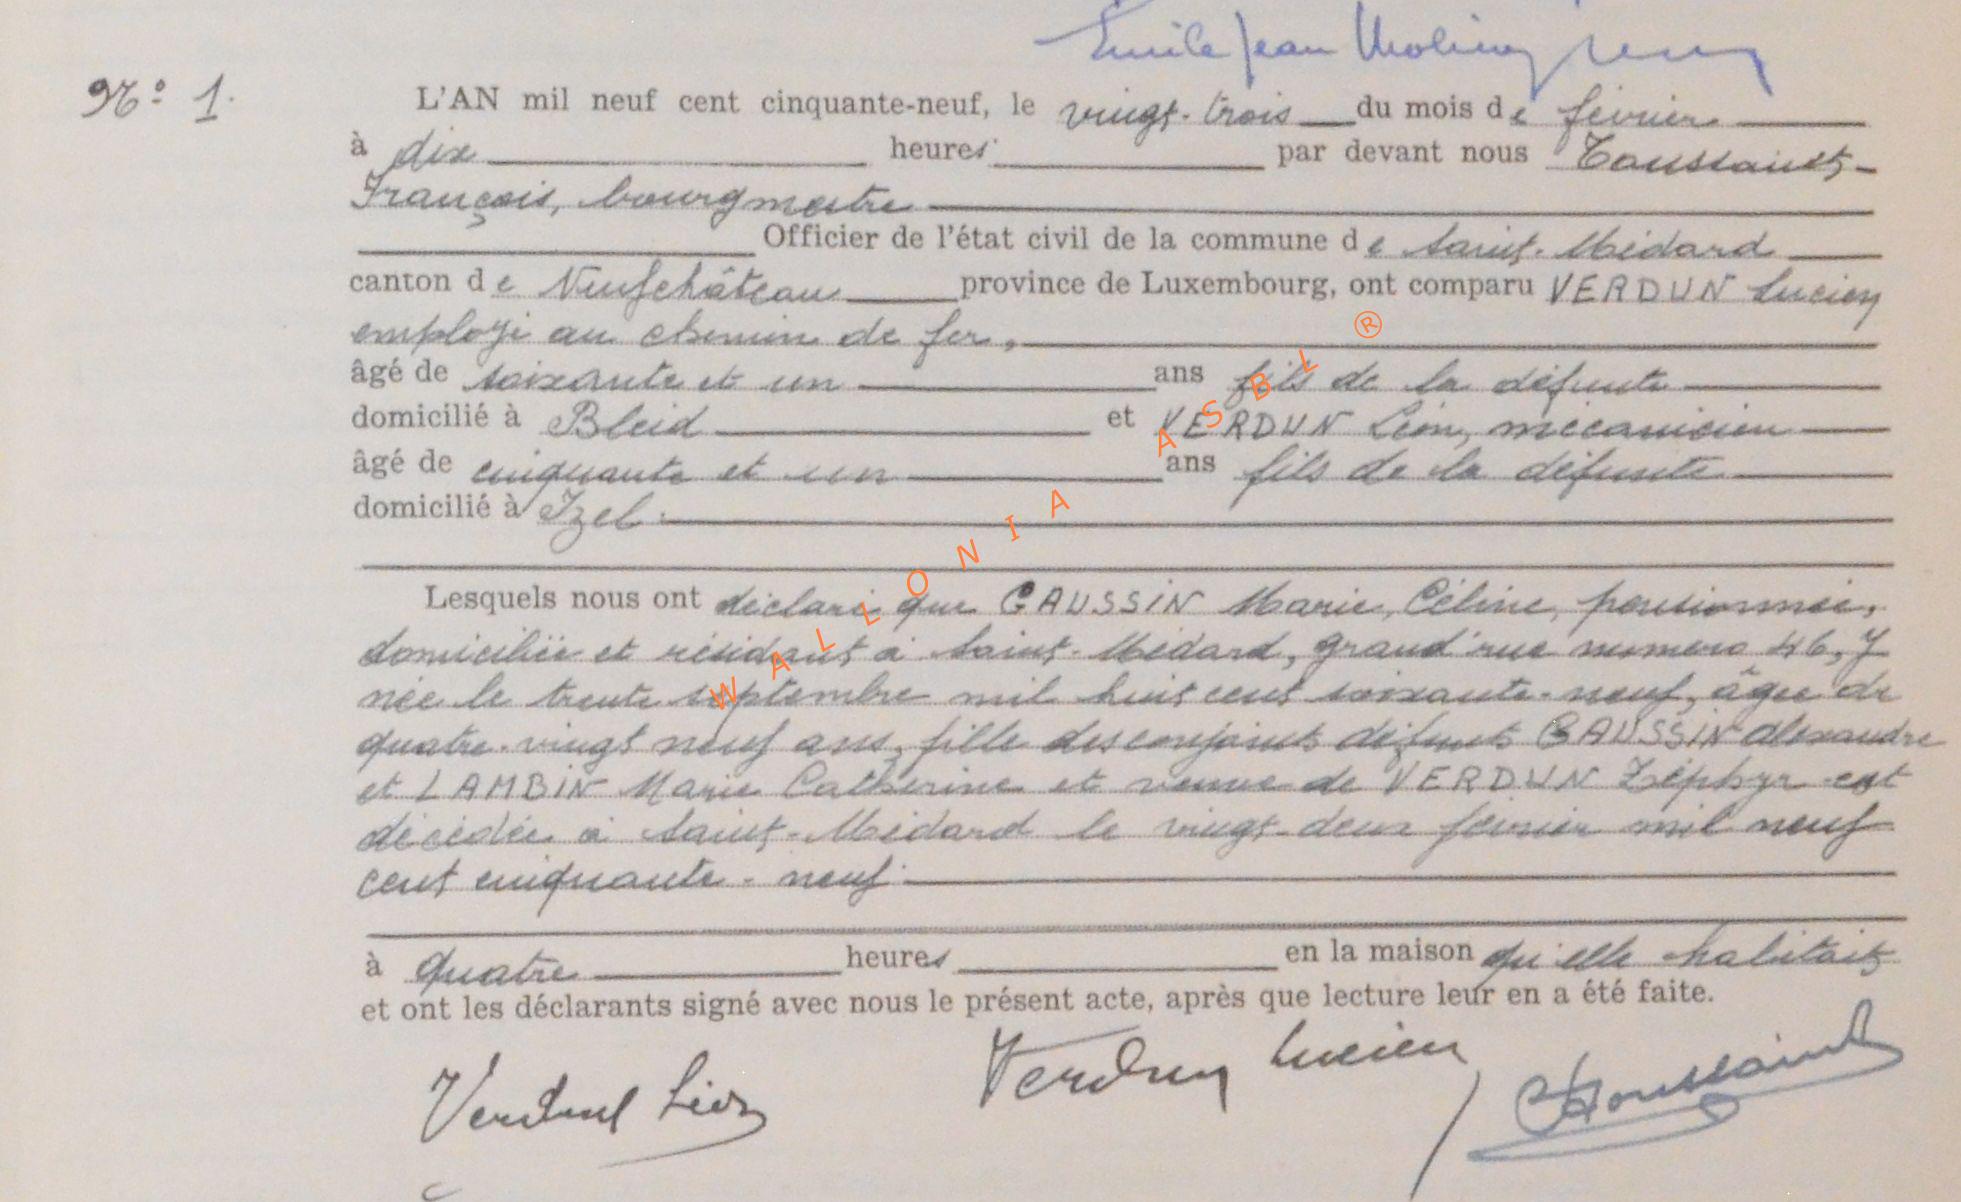 Emile Jean
N° 1.
L'AN mil neuf cent cinquante-neuf, le vingt-trois du mois de février
à dix heures par devant nous Toussaint,
François, bourgmestre
Officier de l'état civil de la commune de Saint-Médard
canton de Neufchâteau province de Luxembourg, ont comparu VERDUN Lucien
employé au chemin de fer,
âgé de soixante et un ans fils de la défunte
domicilié à Bleid et VERDUN Léon, mécanicien
âgé de cinquante et un ans fils de la défunte
domicilié à Izel.
Lesquels nous ont déclaré que GAUSSIN Marie, Céline, pensionnée,
domiciliée et résidant à Saint-Médard, grand'rue numero 46, y
née le trente septembre mil huit cent soixante-neuf, âgée de
quatre-vingt neuf ans, fille des conjoints défunts GAUSSIN Alexandre
et LAMBIN Marie Catherine et veuve de VERDUN Zéphyr est
décédée à Saint-Médard le vingt-deux février mil neuf
cent cinquante-neuf.
à quatre heures en la maison qu'elle habitait
et ont les déclarants signé avec nous le présent acte, après que lecture leur en a été faite.
Verdun Léon Verdun Lucien Toussaint
WALLONIA ASBL ®